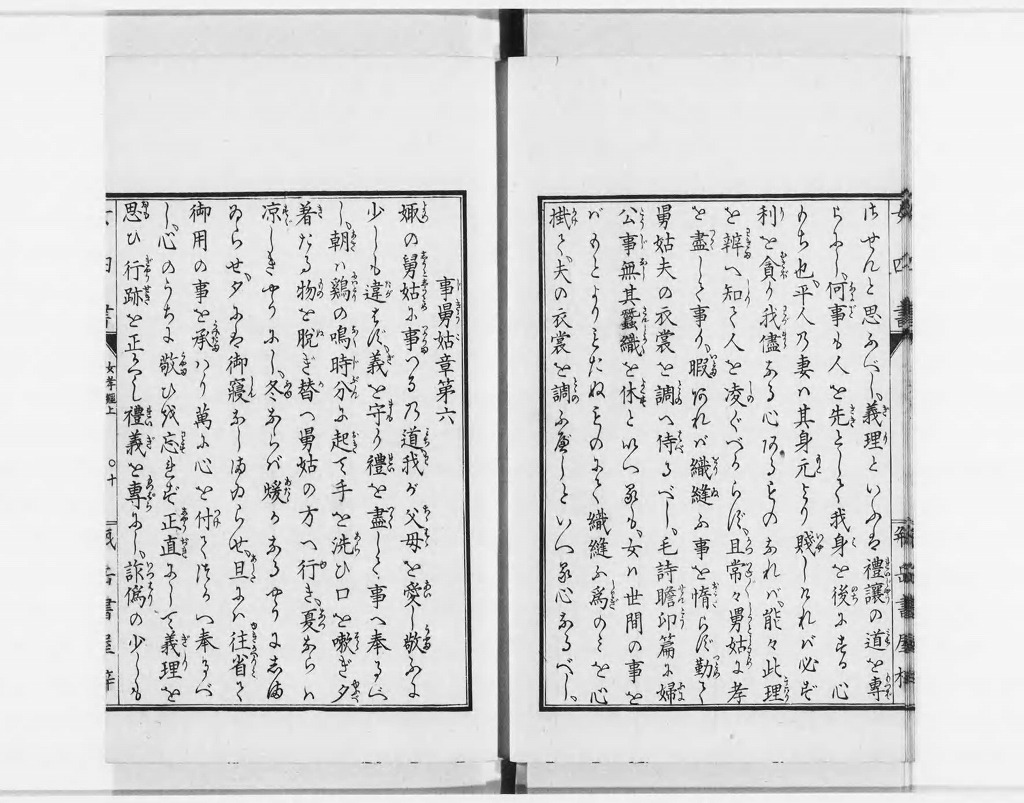 はせんと思ふべし。義理といふは禮讓の道を專
らにし。何事も人を先として我身を後にする心
もち也。平人の妻は其身元より賤しければ必ず
利を貪り我儘なる心あるものなれば。能々此理
を辨へ知て人を凌ぐべからず。且常々舅姑に孝
を盡して事り。暇あれば織縫ふ事を惰らず勤て
舅姑夫の衣裳を調へ侍るべし。毛詩瞻卬篇に婦
公事無其蠶織を休といへるも。女は世間の事を
ばもとよりことだねものにて織縫ふ爲のみを心
掛て。夫の衣裳を調ふ可しといへる心なるべし。
事舅姑章第六
娵の舅姑に事つるの道我が父母を愛し敬ふに
少しも違はず。義を守り禮を盡して事へ奉るべ
し。朝は鷄の鳴時分に起て手を洗ひ口を嗽ぎ夕
着たる物を脱ぎ替へ舅姑の方へ行き。夏ならば
凉しきやうにし。冬ならば煖かなるやうにしま
ゐらせ。夕には御寢なしまゐらせ。旦には往省て
御用の事を承はり萬に心を付てつかへ奉るべ
し。心のうちに敬ひを忘れず正直にして義理を
思ひ行跡を正くし禮義を專にし。詐僞の少しも
女四書
女孝經上
〇十